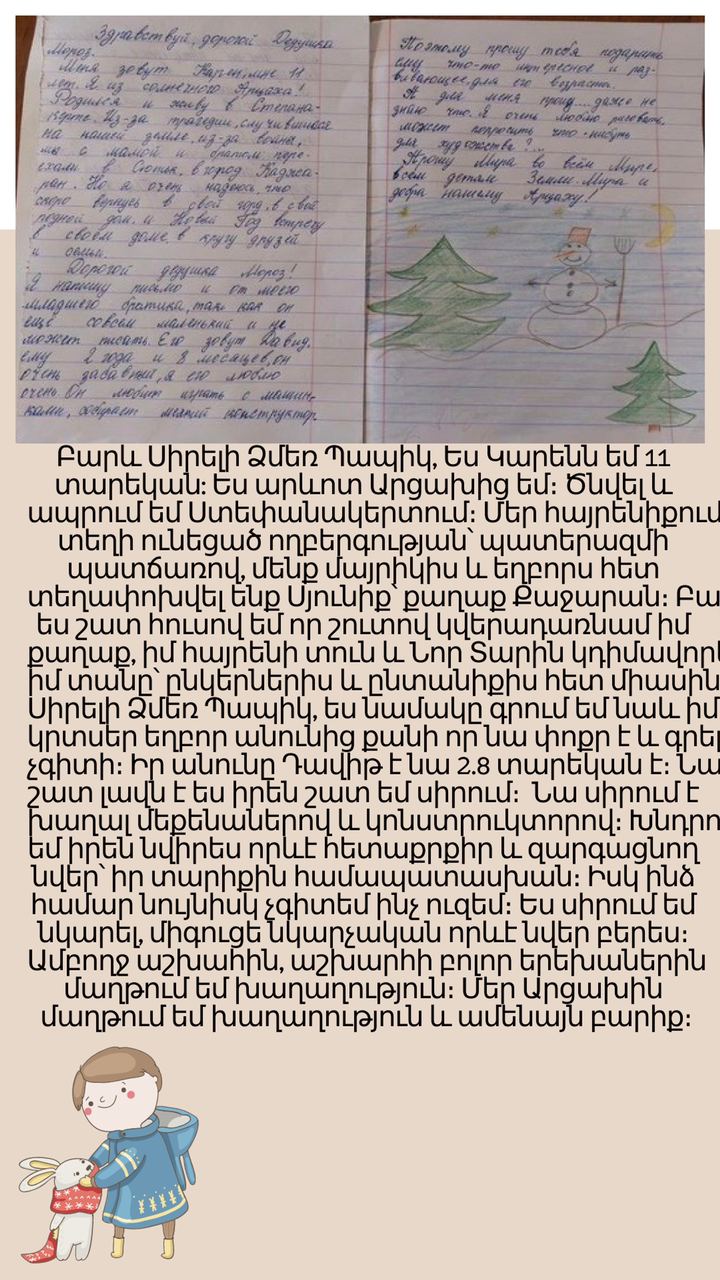 Здравствуй, дорогой Дедушка
Мороз.
Меня зовут Карен, мне 11
лет. Я из солнечного Арцаха!
Родился и живу в Степана-
керте. Из-за трагедии, случившейся
на нашей земле, из-за войны,
мы с мамой и братом пере-
ехали в Сюник, в город Каджа-
ран. Но я очень надеюсь, что
скоро вернусь в свой город, в свой
родной дом. и Новый Год встречу
в своём доме, в кругу друзей
и семьи.
Дорогой дедушка Мороз!
Я напишу письмо и от моего
младшего братика, так как он
ещё совсем маленький и не
может писать. Его зовут Давид,
ему 2 года и 8 месяцев, он
очень забавный, я его люблю
очень. Он любит играть с машин-
ками, собирает мелкий конструктор.
Поэтому прошу тебя подарить
ему что-то интересное и раз-
вивающее, для его возраста.
А для меня прошу.... даже не
знаю что. Я очень люблю рисовать,
может попросить что-нибудь
для художества?...
Прошу Мира во всём Мире,
всем детям Земли. Мира и
добра нашему Арцаху!
Բարև Սիրելի Ձմեռ Պապիկ, Ես Կարենն եմ 11
տարեկան: Ես արևոտ Արցախից եմ։ Ծնվել և
ապրում եմ Ստեփանակերտում։ Մեր հայրենիքում
տեղի ունեցած ողբերգության՝ պատերազմի
պատճառով, մենք մայրիկիս և եղբորս հետ
տեղափոխվել ենք Սյունիք՝ քաղաք Քաջարան։ Բա
ես շատ հուսով եմ որ շուտով կվերադառնամ իմ
քաղաք, իմ հայրենի տուն և Նոր Տարին կդիմավորե
իմ տանը՝ ընկերներիս և ընտանիքիս հետ միասին
Սիրելի Ձմեռ Պապիկ, ես նամակը գրում եմ նաև իմ
կրտսեր եղբոր անունից քանի որ նա փոքր է և գրել
չգիտի։ Իր անունը Դավիթ է նա 2.8 տարեկան է։ Նա
շատ լավն է ես իրեն շատ եմ սիրում։ Նա սիրում է
խաղալ մեքենաներով և կոնստրուկտորով։ Խնդրո
եմ իրեն նվիրես որևէ հետաքրքիր և զարգացնող
նվեր՝ իր տարիքին համապատասխան։ Իսկ ինձ
համար նույնիսկ չգիտեմ ինչ ուզեմ։ Ես սիրում եմ
նկարել, միգուցե նկարչական որևէ նվեր բերես։
Ամբողջ աշխահին, աշխարհի բոլոր երեխաներին
մաղթում եմ խաղաղություն։ Մեր Արցախին
մաղթում եմ խաղաղություն և ամենայն բարիք։